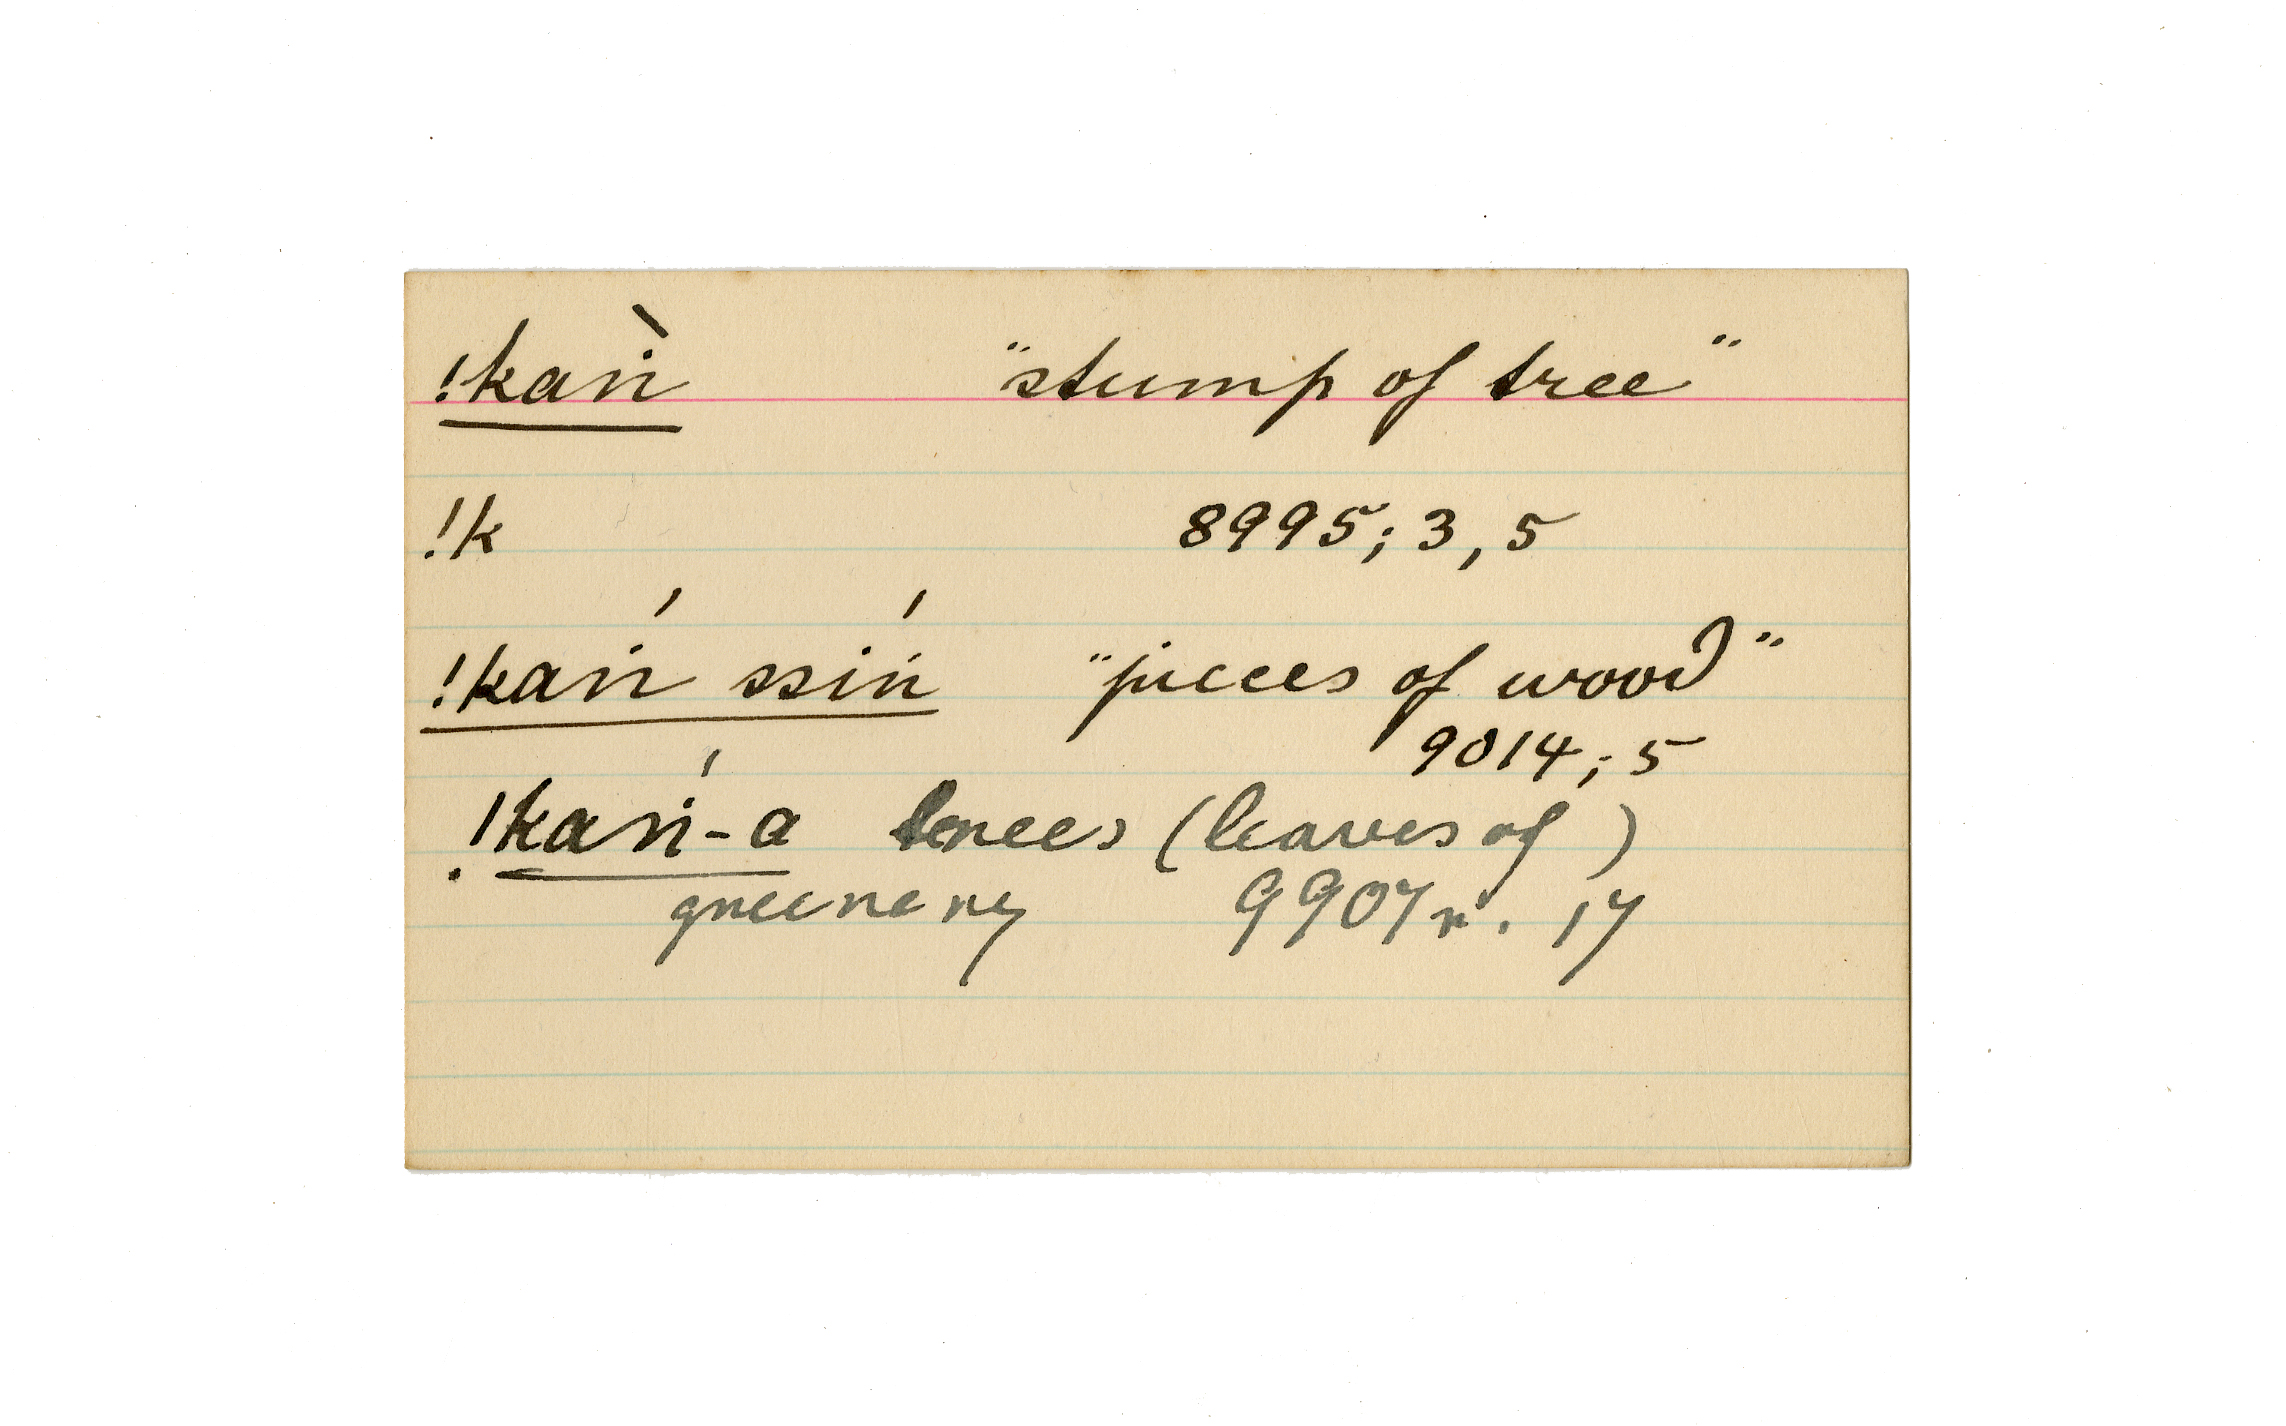 !kaṅ̀ "stump of tree"
!k 8995; 3, 5
!kaṅ́ ssiṅ́ "pieces of wood"
9014; 5
!kaṅ́-a trees (leaves of)
greenery 9907 r'. 17